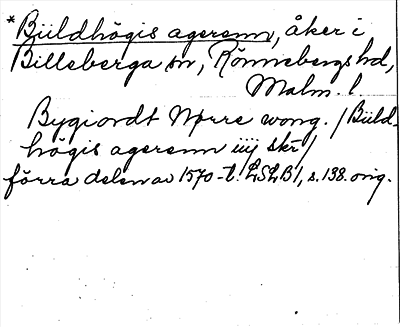 *Büldhögis agerenn, åker i
Billeberga sn, Rönnebergs hd,
Malm. l.
Bygiordt Nörre wong. / Büld-
högis agerenn iiij skr /
förra delen av 1570-t. LSLB1, s. 138. orig.